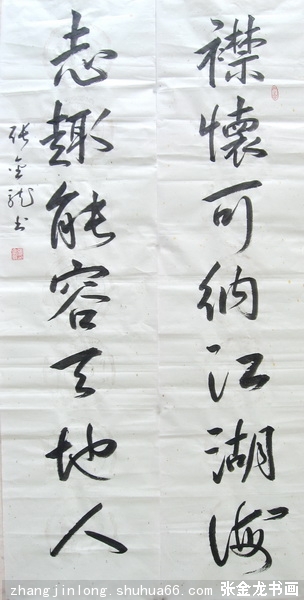 襟懷可納江湖海
志趣能容天地人
張金龍書
zhangjinlong.shuhua66.com 张金龙书画